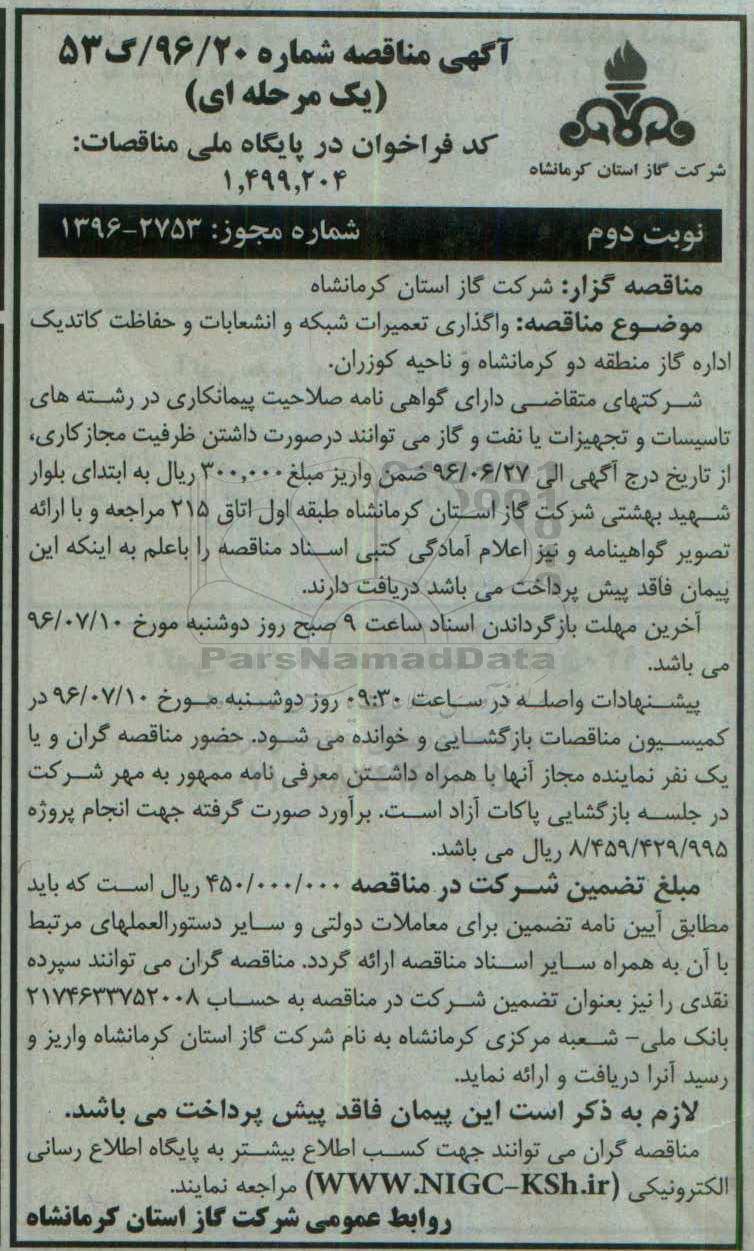 آگهی مناقصه شماره ۹۶/۲۰/گ۵۳
(یک مرحله ای)
کد فراخوان در پایگاه ملی مناقصات:
۱,۴۹۹,۲۰۴
شرکت گاز استان کرمانشاه
نوبت دوم شماره مجوز: ۲۷۵۳-۱۳۹۶
مناقصه گزار: شرکت گاز استان کرمانشاه
موضوع مناقصه: واگذاری تعمیرات شبکه و انشعابات و حفاظت کاتدیک
اداره گاز منطقه دو کرمانشاه و ناحیه کوزران.
شرکتهای متقاضی دارای گواهی نامه صلاحیت پیمانکاری در رشته های
تاسیسات و تجهیزات یا نفت و گاز می توانند درصورت داشتن ظرفیت مجازکاری،
از تاریخ درج آگهی الی ۹۶/۰۶/۲۷ ضمن واریز مبلغ ۳۰۰,۰۰۰ ریال به ابتدای بلوار
شهید بهشتی شرکت گاز استان کرمانشاه طبقه اول اتاق ۲۱۵ مراجعه و با ارائه
تصویر گواهینامه و نیز اعلام آمادگی کتبی اسناد مناقصه را باعلم به اینکه این
پیمان فاقد پیش پرداخت می باشد دریافت دارند.
آخرین مهلت بازگرداندن اسناد ساعت ۹ صبح روز دوشنبه مورخ ۹۶/۰۷/۱۰
می باشد.
ParsNamadData
پیشنهادات واصله در ساعت ۰۹:۳۰ روز دوشنبه مورخ ۹۶/۰۷/۱۰ در
کمیسیون مناقصات بازگشایی و خوانده می شود. حضور مناقصه گران و یا
یک نفر نماینده مجاز آنها با همراه داشتن معرفی نامه ممهور به مهر شرکت
در جلسه بازگشایی پاکات آزاد است. برآورد صورت گرفته جهت انجام پروژه
۸/۴۵۹/۴۲۹/۹۹۵ ریال می باشد.
مبلغ تضمین شرکت در مناقصه ۴۵۰/۰۰۰/۰۰۰ ریال است که باید
مطابق آیین نامه تضمین برای معاملات دولتی و سایر دستورالعملهای مرتبط
با آن به همراه سایر اسناد مناقصه ارائه گردد. مناقصه گران می توانند سپرده
نقدی را نیز بعنوان تضمین شرکت در مناقصه به حساب ۲۱۷۴۶۳۳۷۵۲۰۰۸
بانک ملی- شعبه مرکزی کرمانشاه به نام شرکت گاز استان کرمانشاه واریز و
رسید آنرا دریافت و ارائه نماید.
لازم به ذکر است این پیمان فاقد پیش پرداخت می باشد.
مناقصه گران می توانند جهت کسب اطلاع بیشتر به پایگاه اطلاع رسانی
الکترونیکی (WWW.NIGC-KSh.ir) مراجعه نمایند.
روابط عمومی شرکت گاز استان کرمانشاه